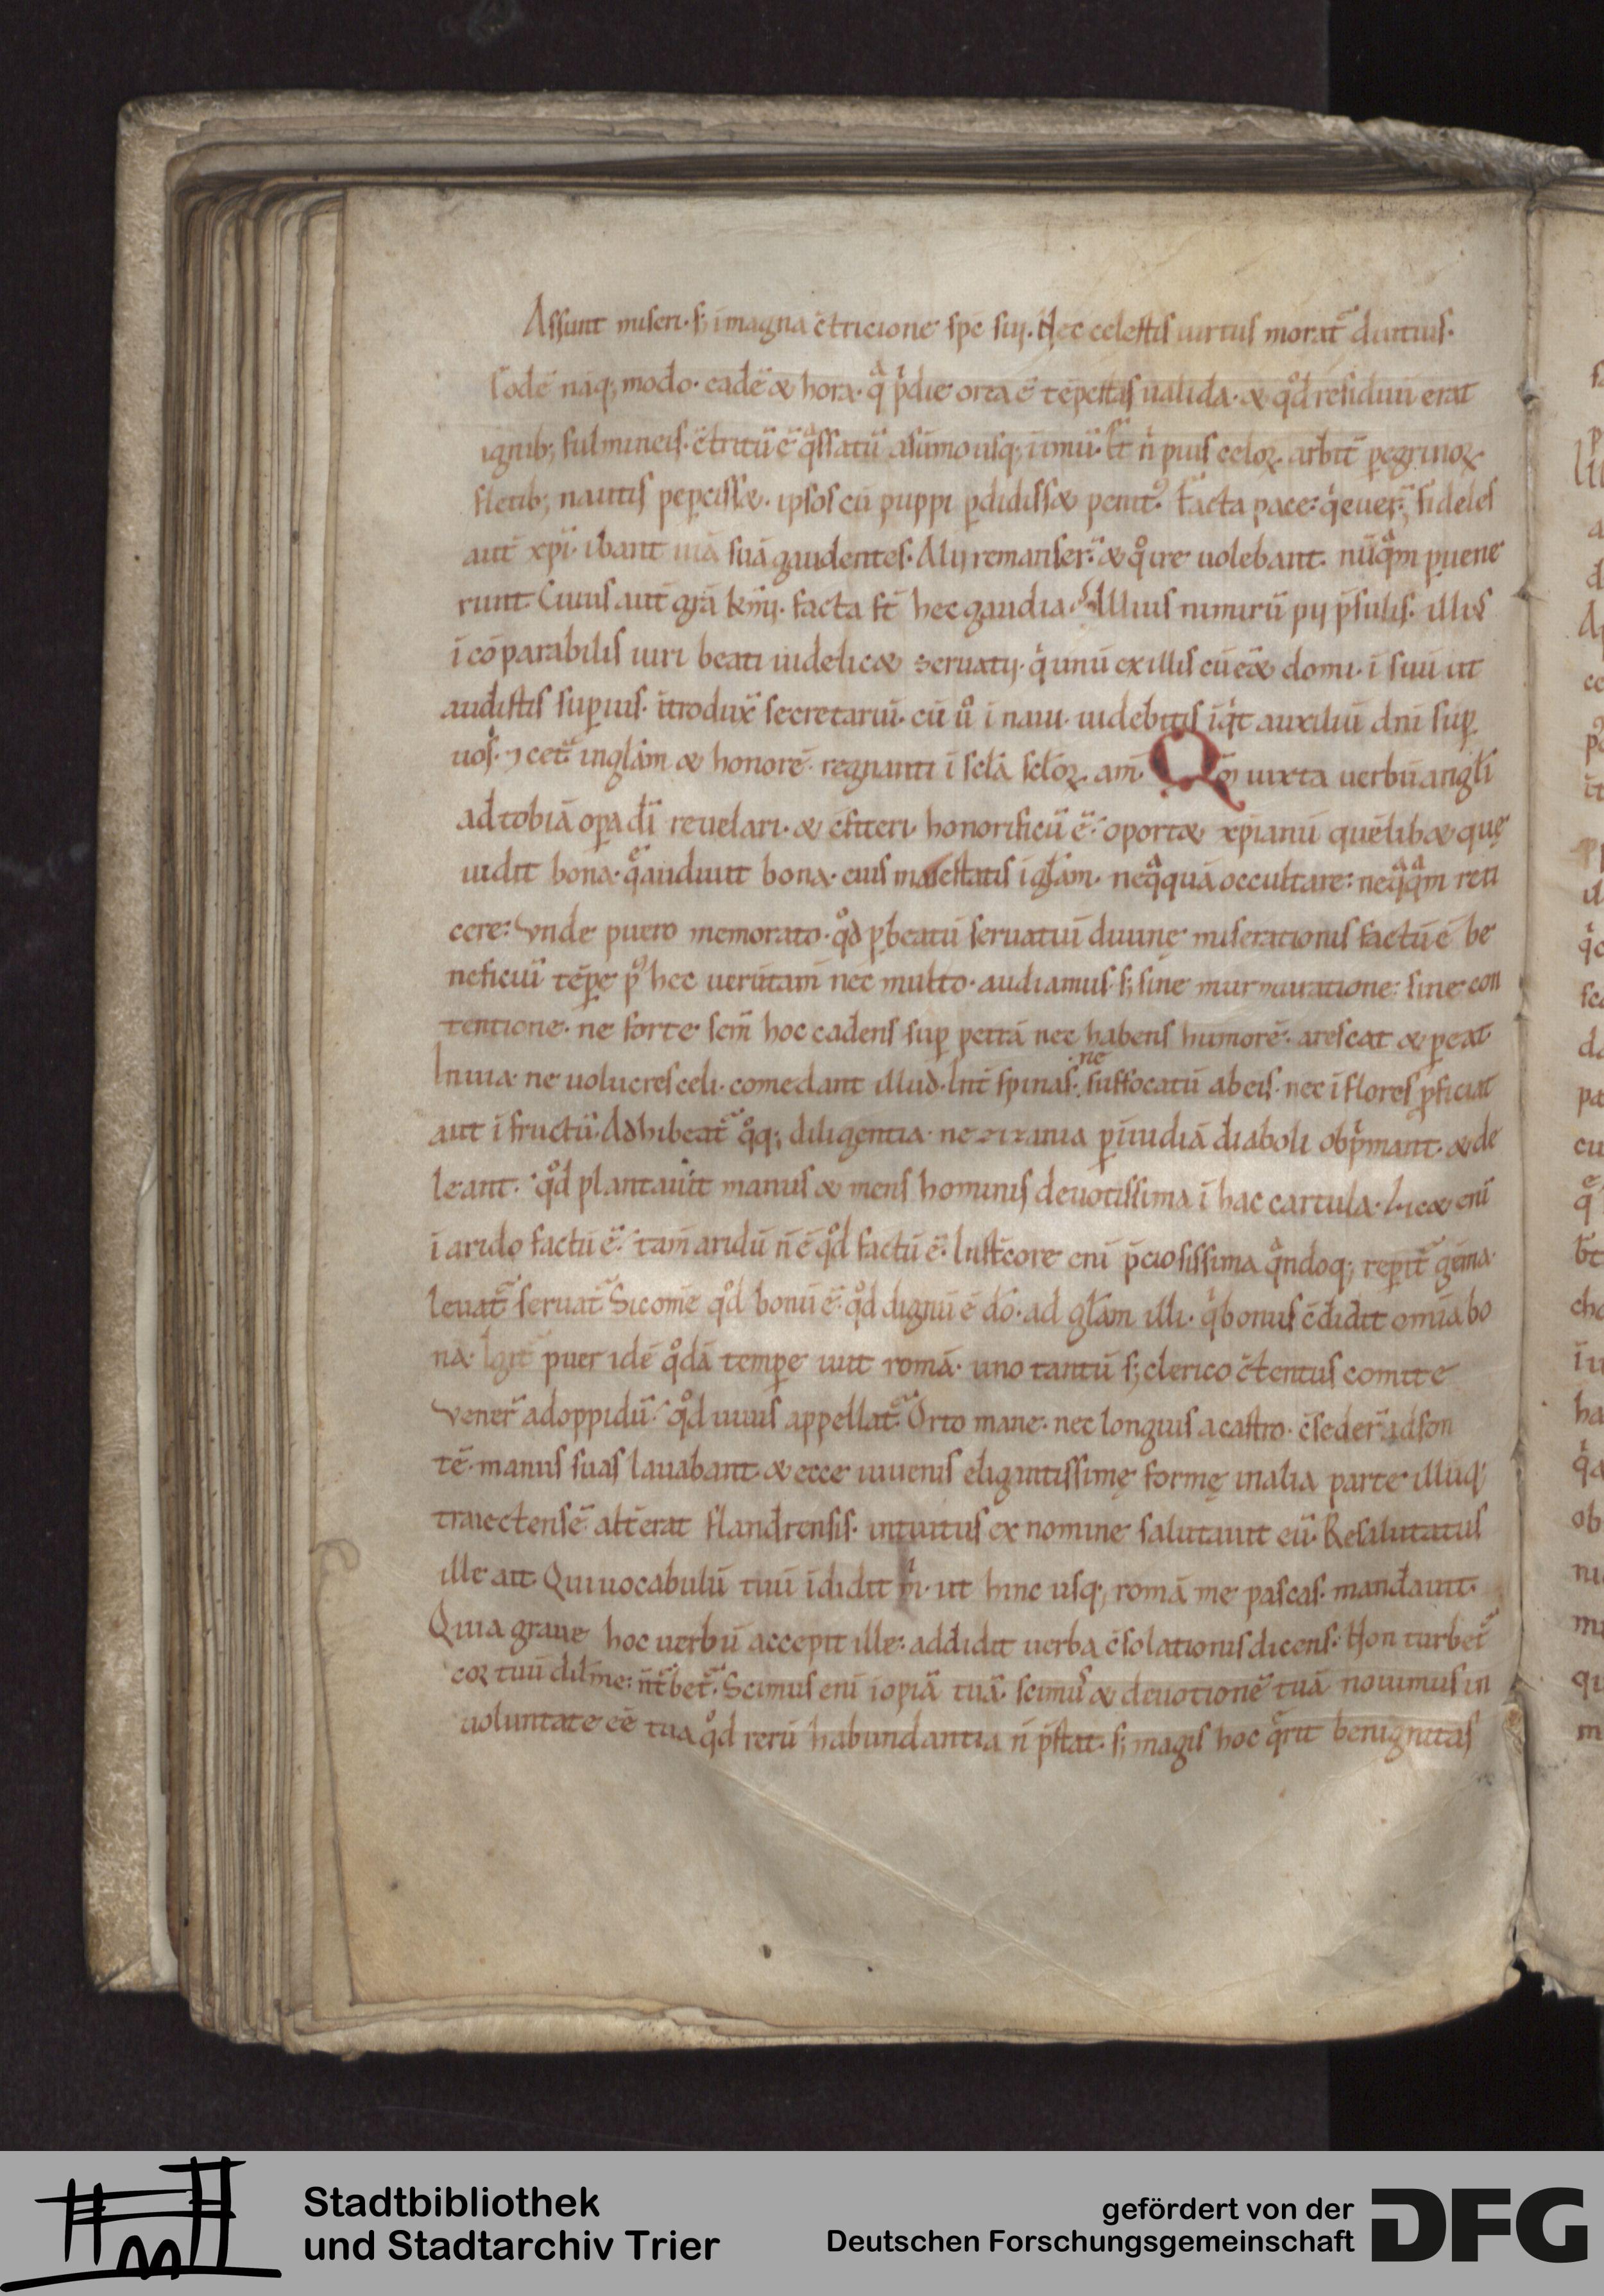 Assunt miseri· s; ī magna c̄tricione spe sui. Nec celestis uirtus morat᷑ diutius·
sodē naq; modo· eadē & hora· qͣ pͥdie orta ē tēpestas ualida· & qͦd residuū erat
ignib; fulmineis· c̄tritū ē qͣssatū a sūmo usq; ī imū· Et n̄ pius celoꝝ arbit̄ pegrinoꝝ
fletib; nautis peꝑcisset· ipsos cū puppi ꝑdidisset penit᷒· Facta pace: qͥ euer̄ fideles
aut̄ xp̄i· ibant uiā suā gaudentes· Alij remanser̄· & qͦ ire uolebant· nūqͣm ꝑuene
runt· Cuius aut̄ gr̄a km̄i· facta st̄ hec gaudia? Illius nimirū pij p̄sulis· illi᷒
ī cōparabilis uiri beati uidelicet seruatij· qͥ unū ex illis cū eēt domi· ī suū ut
audistis suꝑius· ītrodux̄ secretariū· cū uͦ ī naui· uidebitis īqͥt auxiliū dn̄i suꝑ
uos· ⁊ cet᷑ in gl̄am & honorē· regnanti ī sc̄la sc̄loꝝ am̄· Qm̄ iuxta uerbū angl̄i
ad tobiā oꝑa dī reuelari· & c̄fiteri· honorificū ē: oportet xp̄ianū quēlibet quę
uidit bona· qͤ audiuit bona· eius maiestatis ī gl̄am· neqͣquā occultare: neqͣqͣm reti
cere: Vnde puero memorato· qͦd ꝑ beatū seruatiū diuinę miserationis factū ē be
neficiū tēꝑe p᷒ hec uerūtam̄ nec multo· audiamus· s; sine murmuratione: sine con
tentione· ne forte sem̄ hoc cadens suꝑ petrā nec habens humorē· arescat & ꝑeat
In uia· ne uolucres celi· comedant illud· Int̄ spinas· ne suffocatū ab eis· nec ī flores ꝓficiat
aut ī fructū· Adhibeat᷑ qͦq; diligentia· ne zizania ꝑ īuidiā diaboli obpͥmant· & de
leant· qͦd plantauit manus & mens hominis deuotissima ī hac cartula· Licet enī
ī arido factū ē: tam̄ aridū n̄ ē qͦd factū ē· In st̄core enī p̄ciosissima qͣndoq; reꝑit᷑ gēma·
leuat᷑ seruat᷑ Sic om̄e qͦd bonū ē· qͦd dignū ē dō· ad gl̄am illi· qͥ bonus c̄didit om̄ia bo
na· Igit᷑ puer idē qͦdā temꝑe iuit romā· uno tantū s; clerico c̄tentus comite
Vener̄ ad oppidū· qͦd uiuis appellat᷑· Orto mane· nec longius a castro· c̄seder̄ ad fon
tē· manus suas lauabant· & ecce iuuenis eligantissimę formę in alia parte illuq;
traiectensē· alt̄ erat flandrensis· intuitus ex nomine salutauit eū· Resalutatus
ille ait· Qui uocabulū tuū īdidit m̄· ut hinc usq; romā me pascas· mandauit·
Quia graue hoc uerbū accepit ille: addidit uerba c̄solationis dicens: Non turbet᷑
coꝝ tuū dil̄me: n̄ t᷑bet᷑· Scimus enī īopiā tuā· scimꝰ & deuotionē tuā nouimus in
uoluntate eē tua qͦd rerū habundantia n̄ p̄stat· s; magis hoc qͣrit benignitas
Stadtbibliothek
und Stadtarchiv Trier
gefördert von der
Deutschen Forschungsgemeinschaft
DFG